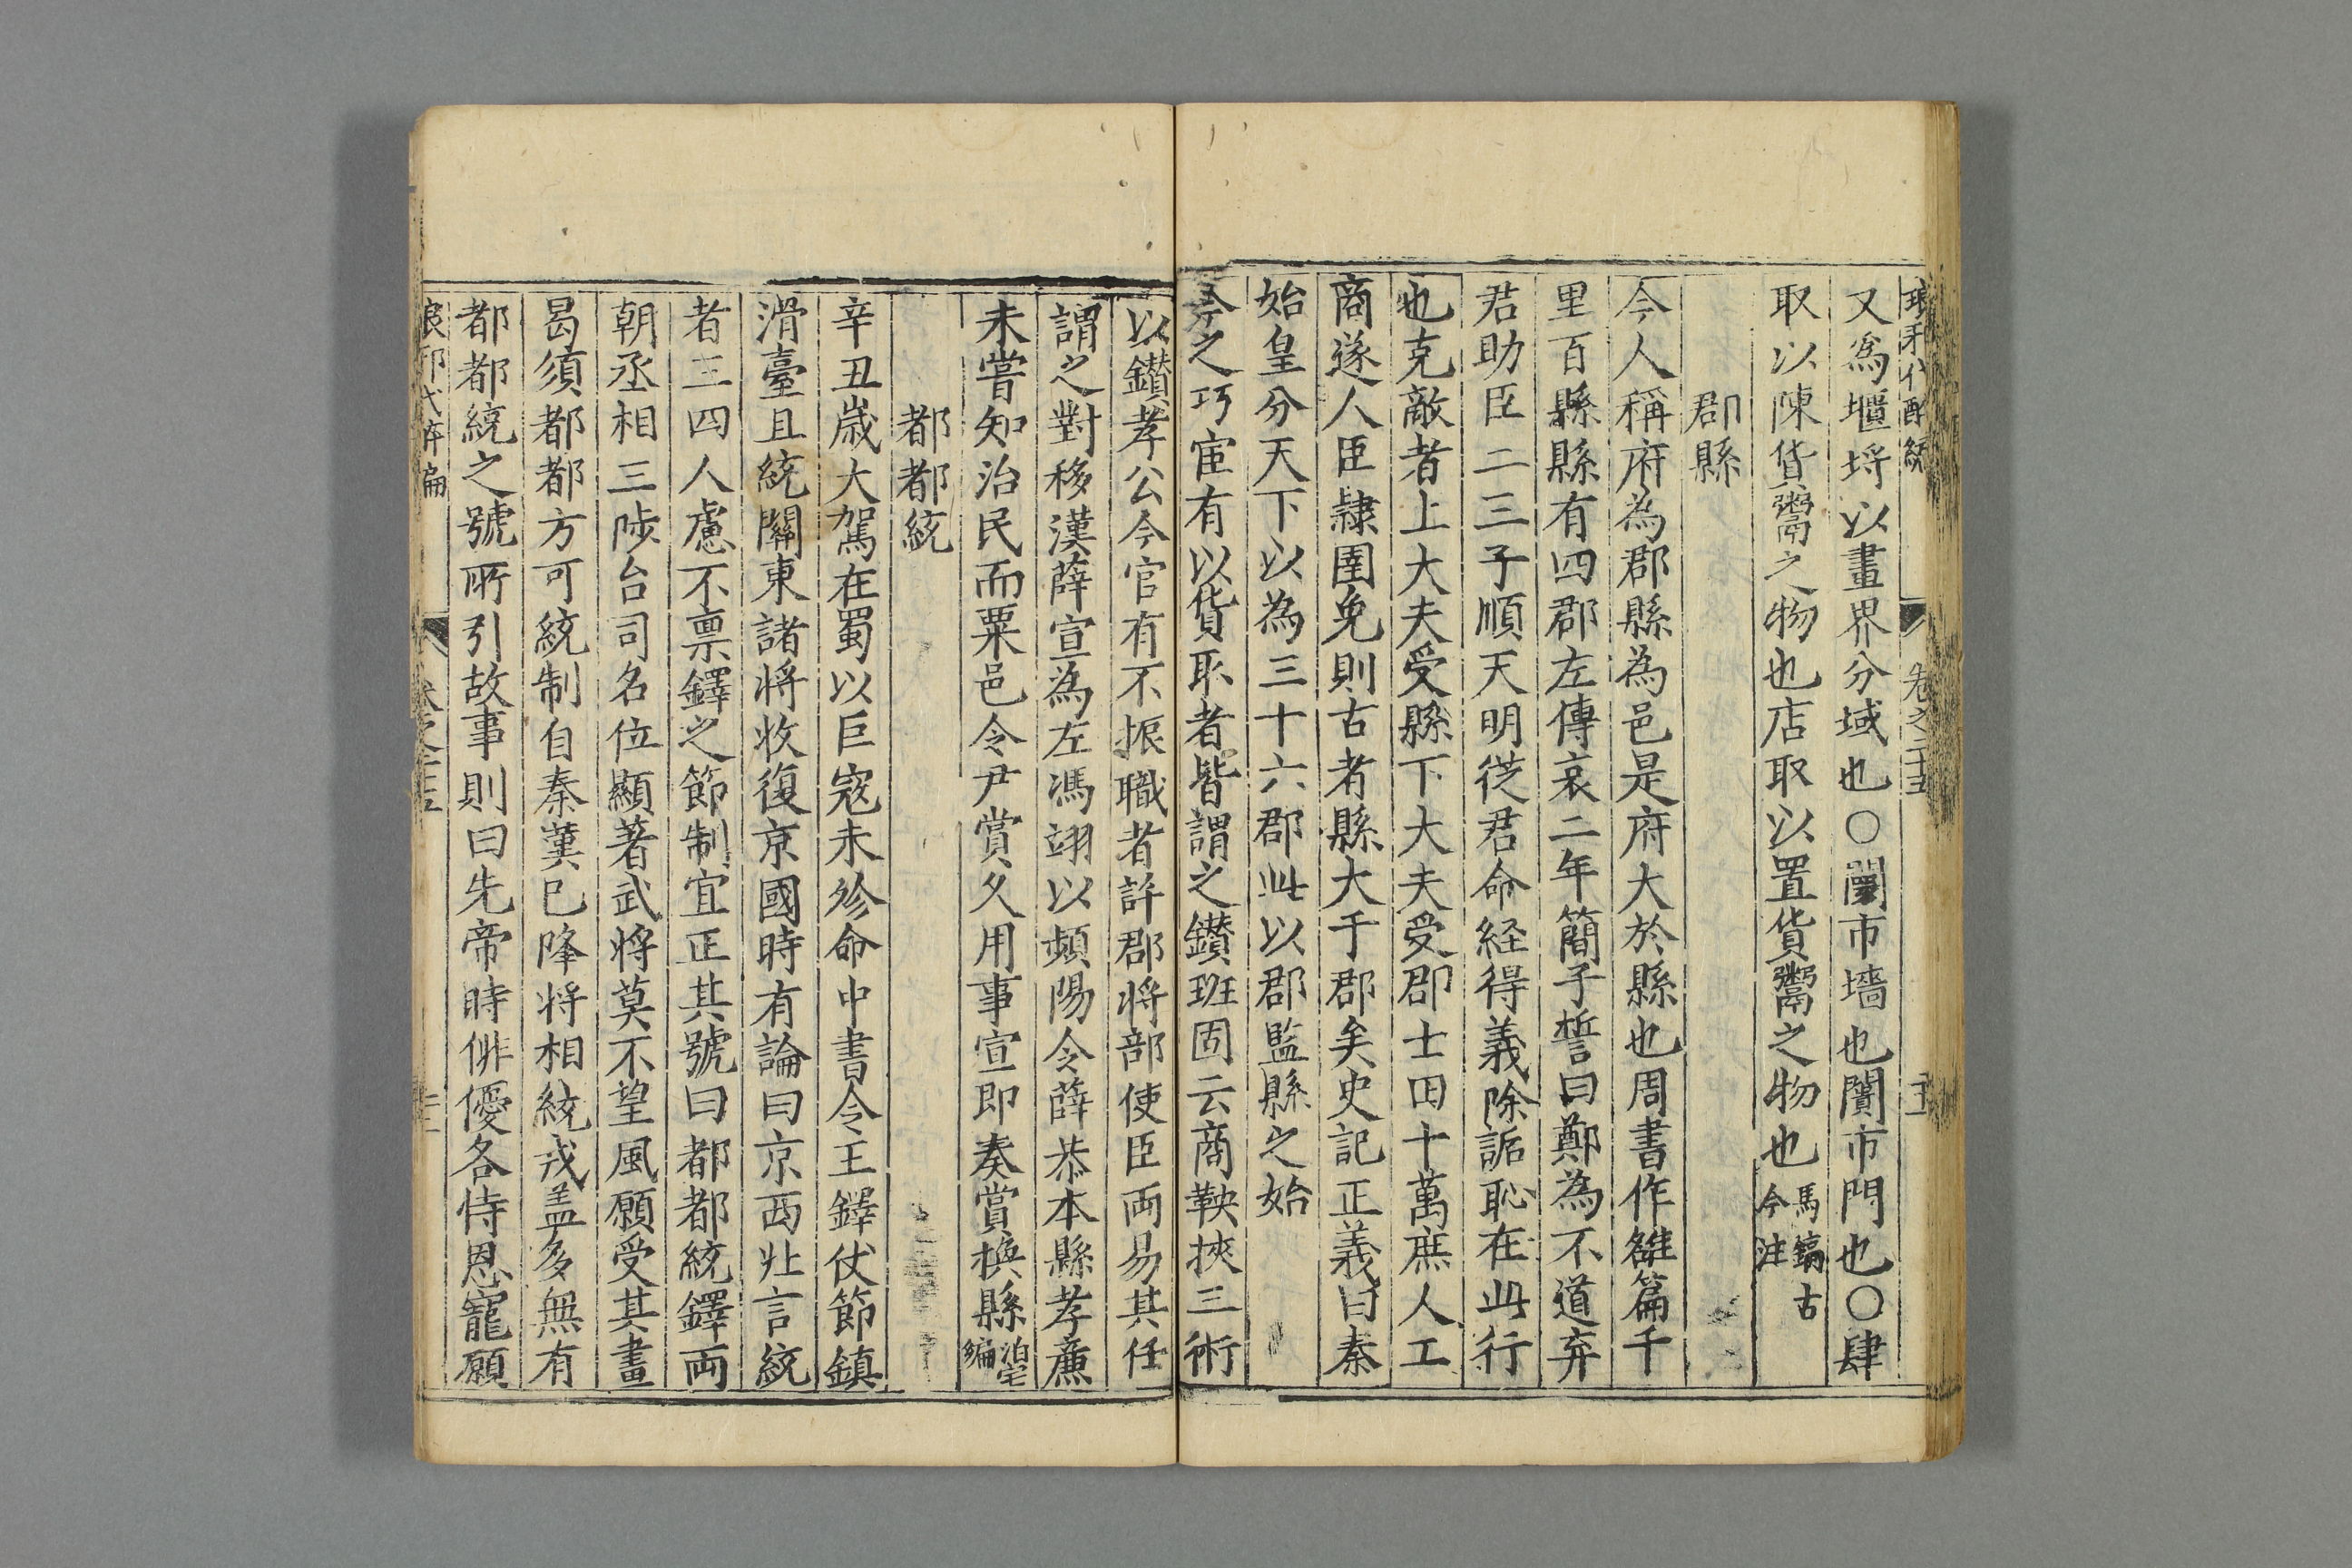 又爲堰埒以畫界分域也○闤市墻也闠市門也○肆
取以陳貨鬻之物也店取以置貨鬻之物也馬鎬古今注
郡縣
今人稱府為郡縣為邑是府大於縣也周書作雒篇千
里百縣縣有四郡左傳哀二年簡子誓曰鄭為不道弃
君助臣二三子順天明従君命経得義除詬恥在此行
也克敵者上大夫受縣下大夫受郡士田十萬庶人工
商遂人臣隷圉免則古者縣大于郡矣史記正義曰秦
始皇分天下以為三十六郡此以郡監縣之始
之巧宦有以貨取者皆謂之鑚班固云商鞅挾三術
以鑚孝公今官有不振職者許郡将部使臣両易其任
謂之對移漢薛宣為左馮翊以頻陽令薛恭本縣孝廉
未嘗知治民而粟邑令尹賞久用事宣即奏賞換縣泊宅編
都都統
辛丑歲大駕在蜀以巨寇未殄命中書令王鐸仗節鎮
滑臺且統關東諸將收復京國時有論曰京西北言統
者三四人慮不禀鐸之節制宜正其號曰都都統鐸両
朝丞相三陟台司名位顯著武将莫不望風願受其畫
曷須都都方可統制自秦蕢已降将相統戎盖多無有
都都統之號所引故事則曰先帝時俳優各恃恩寵願
卷之二十五